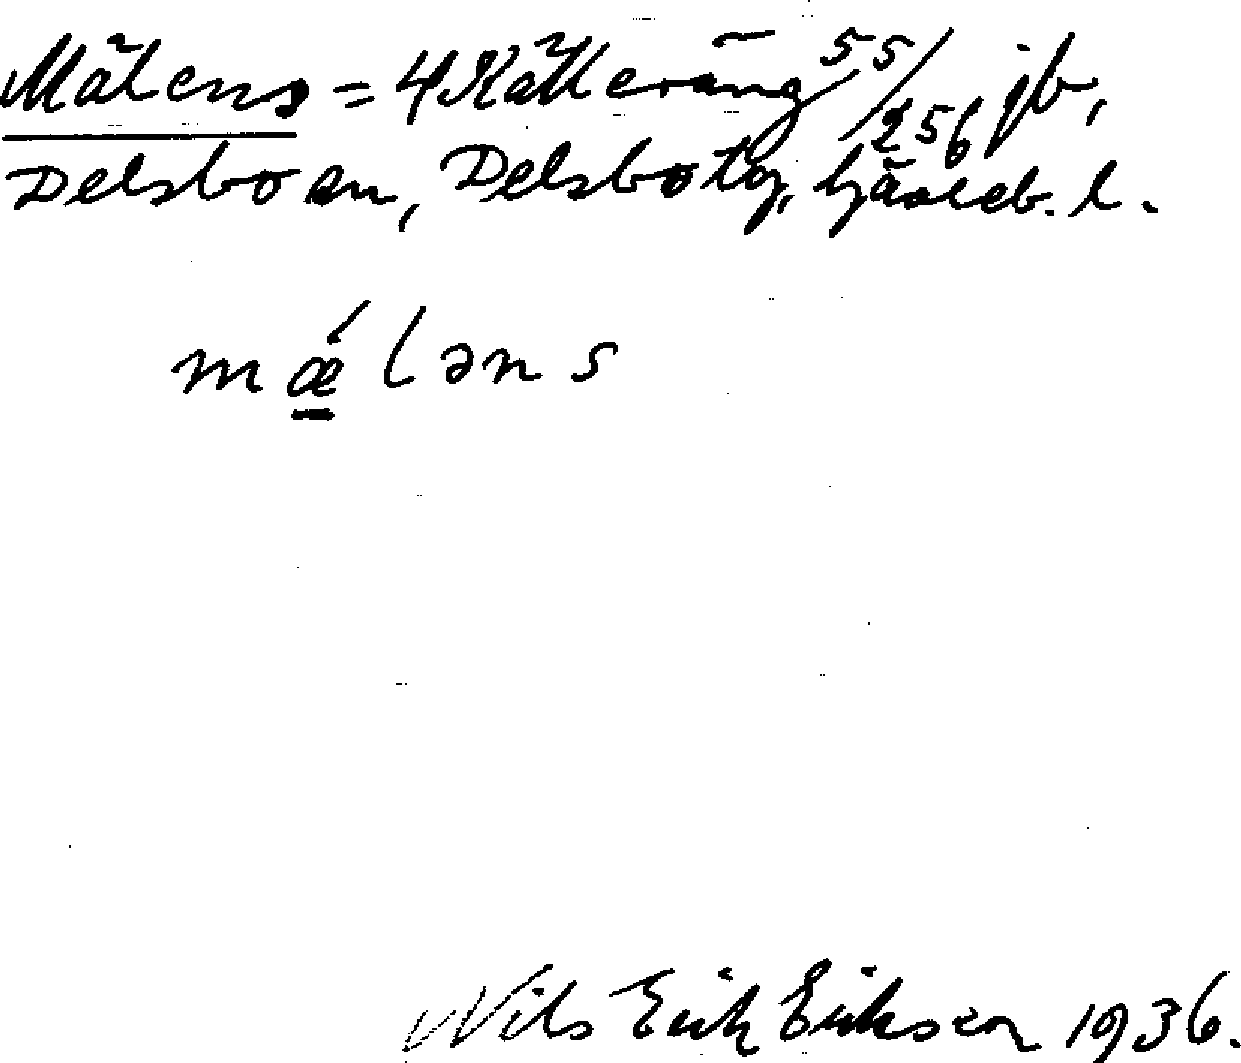 Mälens = 4 Källeräng 55/256 jb,
Delsbo sn, Delsbo tg, Gävleb. l.
mǽ̱ləns
Nils Erik Eriksson 1936.